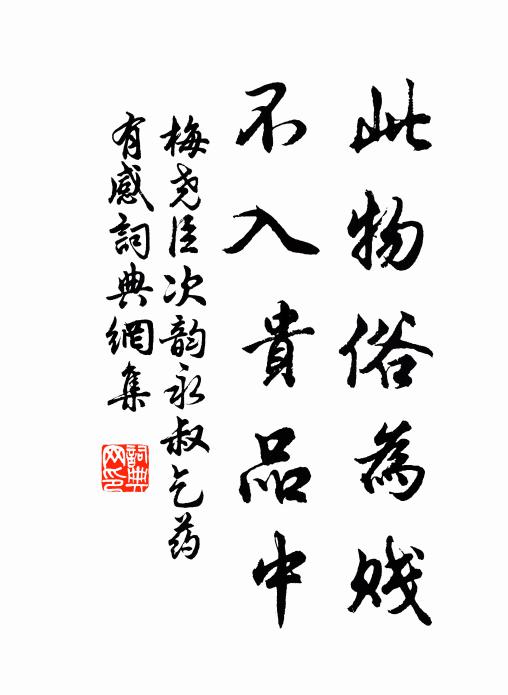 此物俗為賤
不入貴品中
梅尧臣次韵永叔乞药
有感詞典網集
詞典
网印